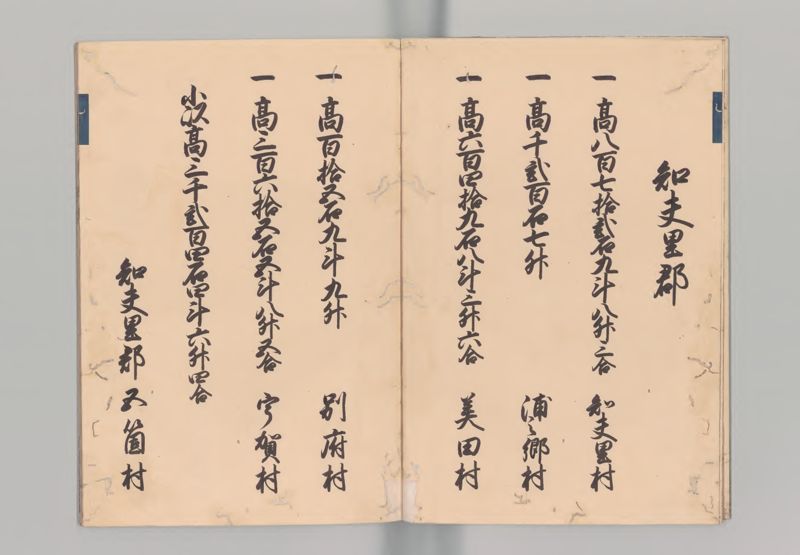 知夫里郡
一 高八百七拾弐石九斗八升三合 知夫里村
一 高千弐百石七升 浦之郷村
一 高六百四拾九石八斗三升六合 美田村
一 高百拾五石九斗九升 別府村
一 高三百六拾五石五斗八升五合 宇賀村
小以高三千弐百四石四斗六升四合
知夫里郡 五箇村